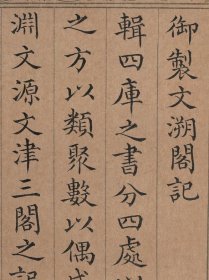 御製文溯閣記
輯四庫之書分四處以
之方以類聚數以偶成
淵文源文津三閣之記